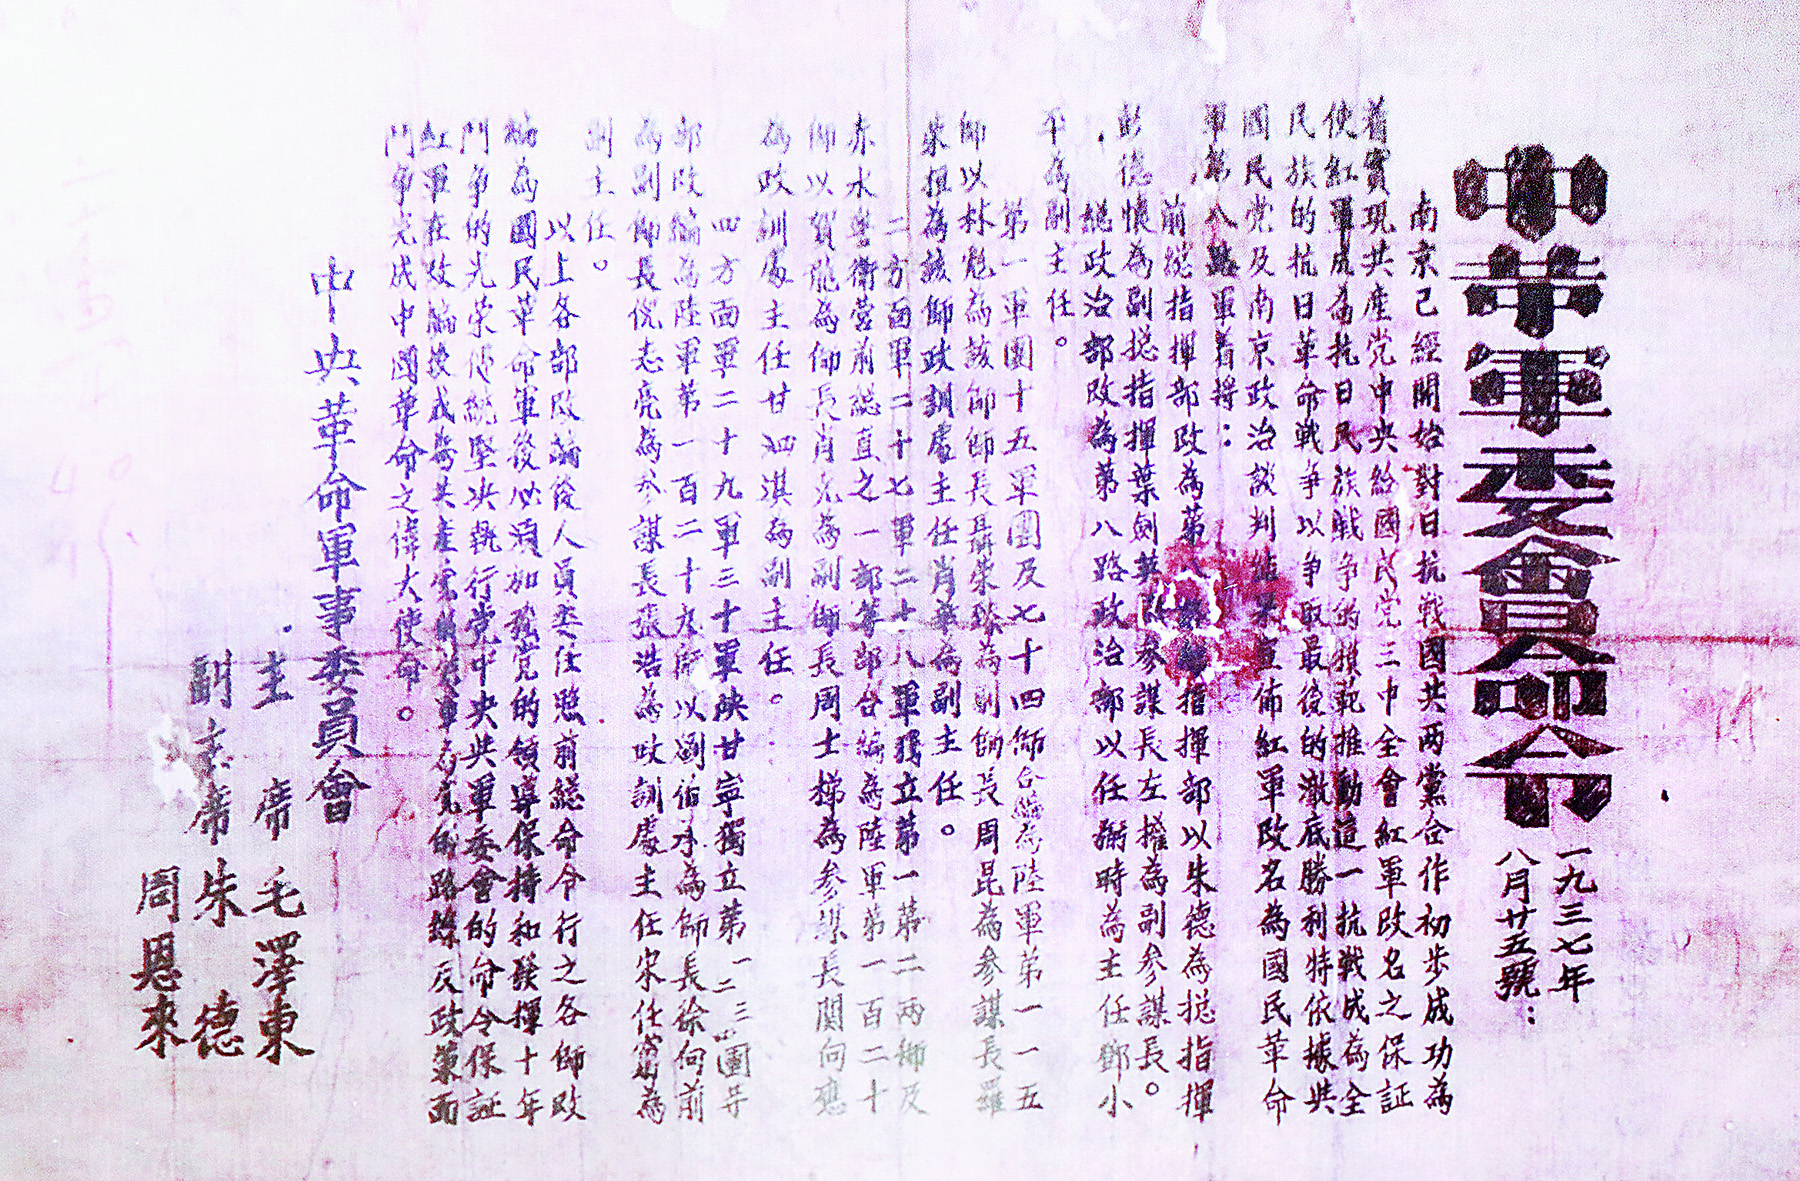 中華軍委會命令
一九三七年
八月廿五號：
南京已經開始對日抗戰國共両黨合作初步成功為
着實現共產党中央給國民党三中全會紅軍改名之保証
使紅軍成為抗日民族戰争的模範推動這一抗戰成為全
民族的抗日革命戰争以争取最後的澈底勝利特依據共
國民党及南京政治談判結果宣佈紅軍改名為國民革命
軍第八路軍着將：
前總指揮部改為第八路總指揮部以朱德為總指揮
彭德懷為副總指揮葉劍英為參謀長左權為副參謀長。
總政治部改為第八路政治部以任弼時為主任鄧小
平為副主任。
第一軍團十五軍團及七十四師合編為陸軍第一一五
師以林彪為該師師長聶榮臻為副師長周昆為參謀長羅
荣担為該師政訓處主任肖華為副主任。
二方面軍二十七軍二十八軍獨立第一第二兩師及
赤水警衛营前總直之一部等部合編為陸軍第一百二十
師以賀龍為師長肖克為副師長周士梯為參謀長関向應
為政訓處主任甘泗淇為副主任。
四方面軍二十九軍三十軍陝甘寧獨立第一二三四團等
部改編為陸軍第一百二十九師以劉伯承為師長徐向前
為副師長倪志亮為參謀長張浩為政訓處主任宋任窮為
副主任。
以上各部改編後人員委任照前總命令行之各師改
編為國民革命軍後必須加强党的領導保持和發揮十年
鬥争的光荣傳統堅决執行党中央共軍委會的命令保証
紅軍在改編後成為共產党的軍為党的路線反政策而
鬥争完成中國革命之偉大使命。
中央革命軍事委員會
主席 毛澤東
副主席 朱德
周恩來